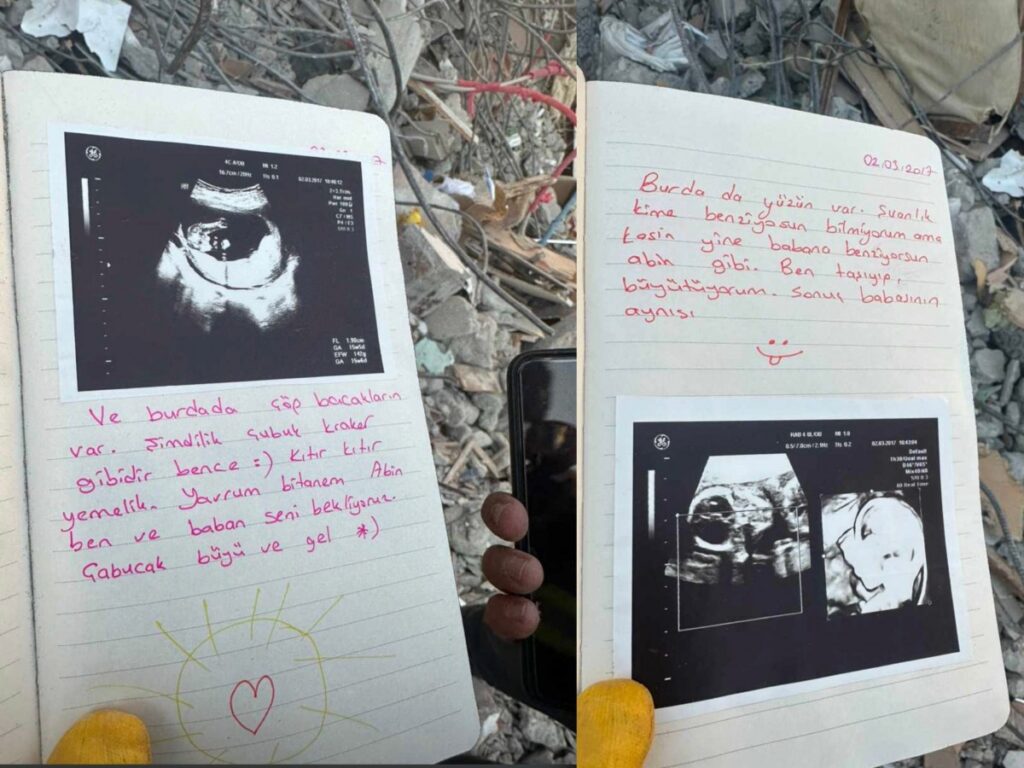 02.03.2017 10:40:12
FL 1.90cm
GA 15w5d
EFW 142g
GA 15w6d
Ve burdada çöp bacakların
var. Şimdilik çubuk kraker
gibidir bence :) Kıtır kıtır
yemelik. Yavrum bitanem Abin
ben ve baban seni bekliyoruz.
Çabucak büyü ve gel *)
02.03.2017
Burda da yüzün var. Şuanlık
kime benziyosun bilmiyorum ama
kesin yine babana benziyorsun
abin gibi. Ben taşıyıp,
büyütüyorum. Sonuç babasının
aynısı
02.03.2017
Default